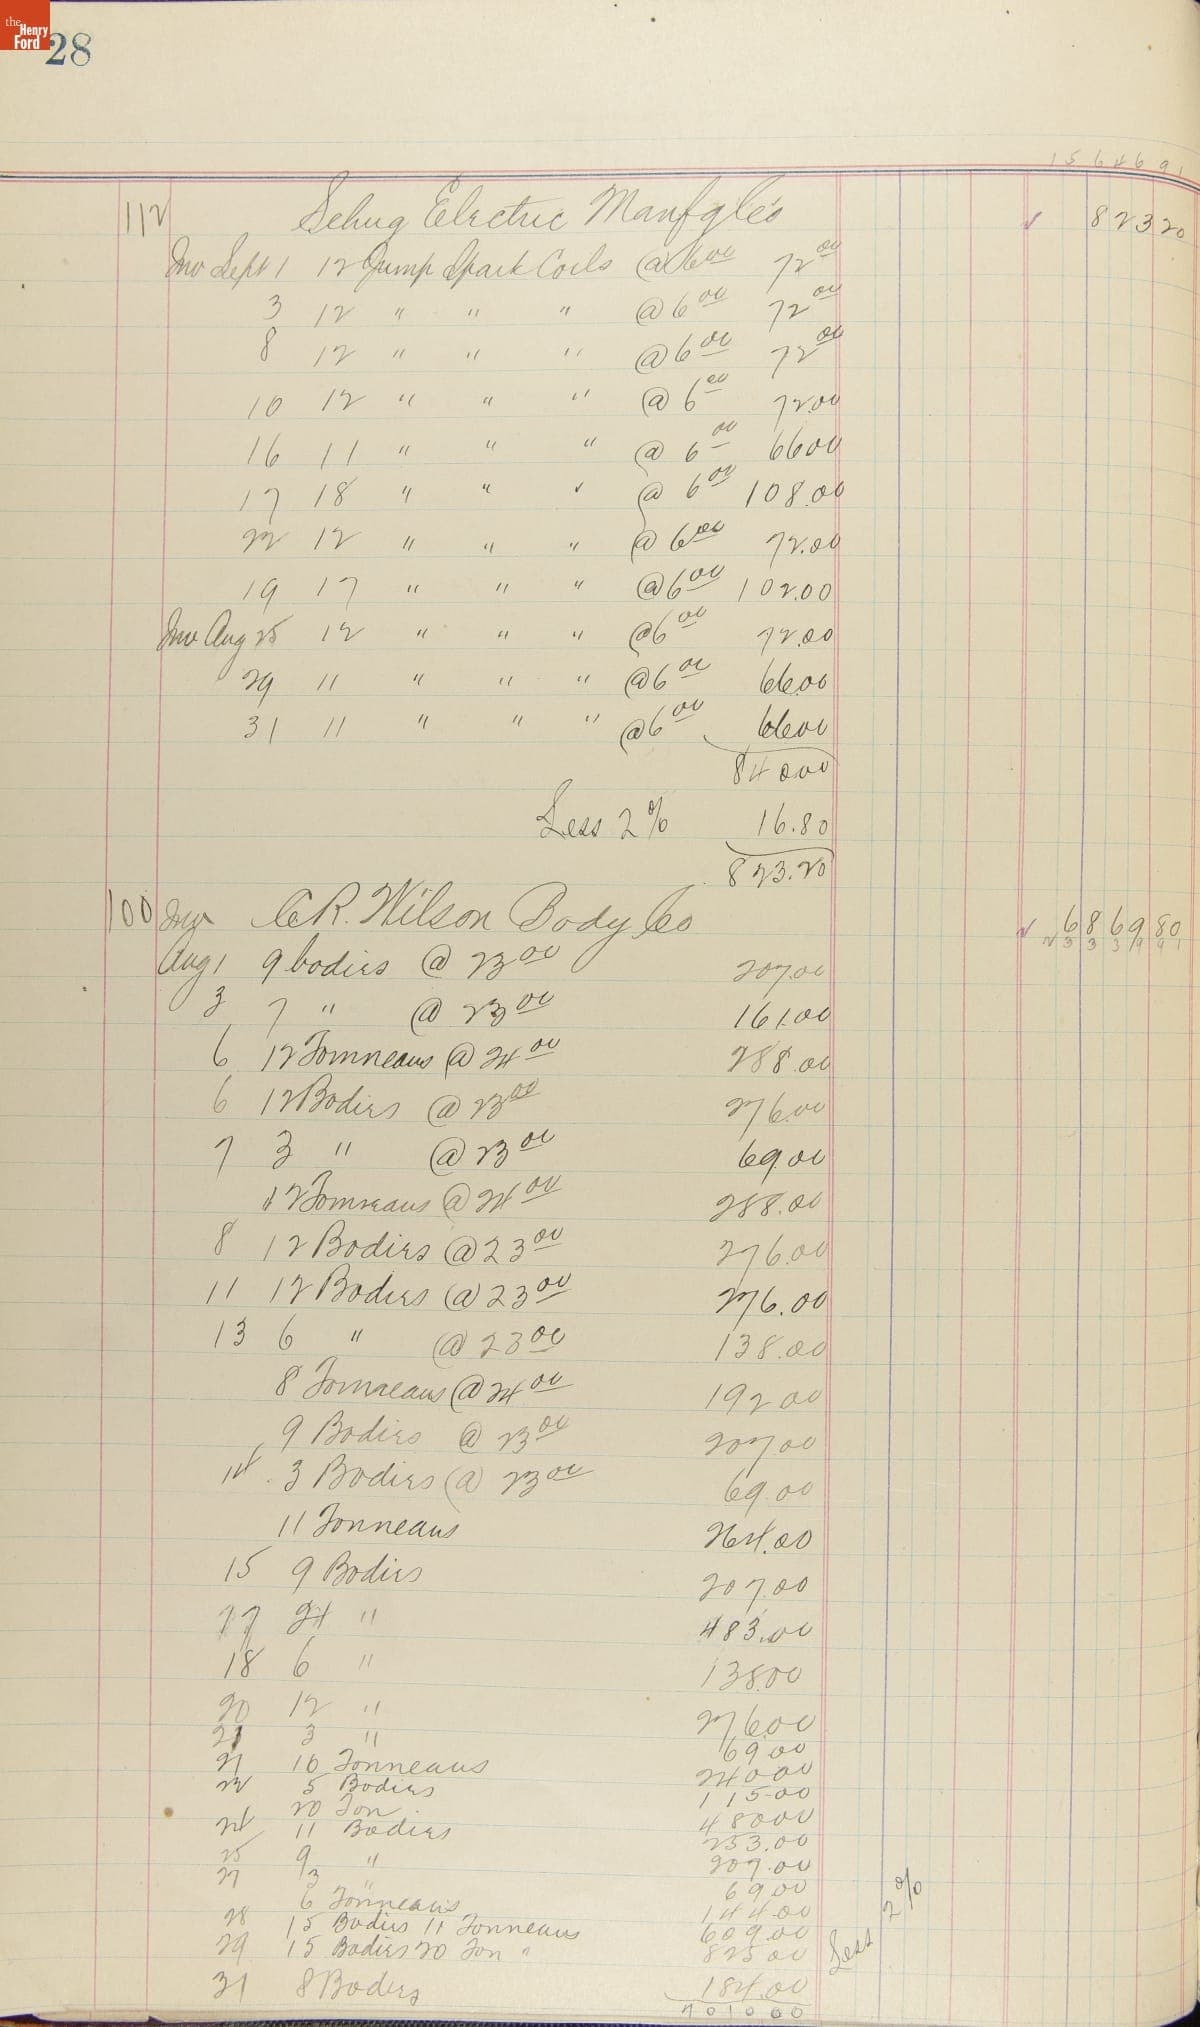 the Henry Ford
28
1564691
112 Schug Electric Manfg Co 823 20
Inv Sept 1 12 Jump Spark Coils @ 6 00 72 00
3 12 " " " @ 6 00 72 00
8 12 " " " @ 6 00 72 00
10 12 " " " @ 6 00 72.00
16 11 " " " @ 6 00 66 00
17 18 " " " @ 6 00 108.00
22 12 " " " @ 6 00 72.00
19 17 " " " @ 6 00 102.00
Inv Aug 25 12 " " " @ 6 00 72.00
29 11 " " " @ 6 00 66.00
31 11 " " " @ 6 00 66.00
840.00
Less 2% 16.80
823.20
100 Inv C R. Wilson Body Co 6869 80
Aug 1 9 bodies @ 23 00 207.00
3 7 " @ 23 00 161.00
6 12 Tonneaus @ 24 00 288.00
6 12 Bodies @ 23 00 276.00
7 3 " @ 23 00 69.00
12 Tonneaus @ 24 00 288.00
8 12 Bodies @ 23 00 276.00
11 12 Bodies @ 23 00 276.00
13 6 " @ 23 00 138.00
8 Tonneaus @ 24 00 192 00
9 Bodies @ 23 00 207 00
14 3 Bodies @ 23 00 69.00
11 Tonneaus 264.00
15 9 Bodies 207.00
17 21 " 483.00
18 6 " 138.00
20 12 " 276.00
21 3 " 69.00
21 10 Tonneaus 240 00
22 5 Bodies 115.00
20 Ton 480 00
24 11 Bodies 253.00
25 9 " 207.00
27 3 " 69.00
6 Tonneaus 144.00
28 15 Bodies 11 Tonneaus 609.00
29 15 Bodies 20 Ton " 825 00 Less 2%
31 8 Bodies 184.00
701000